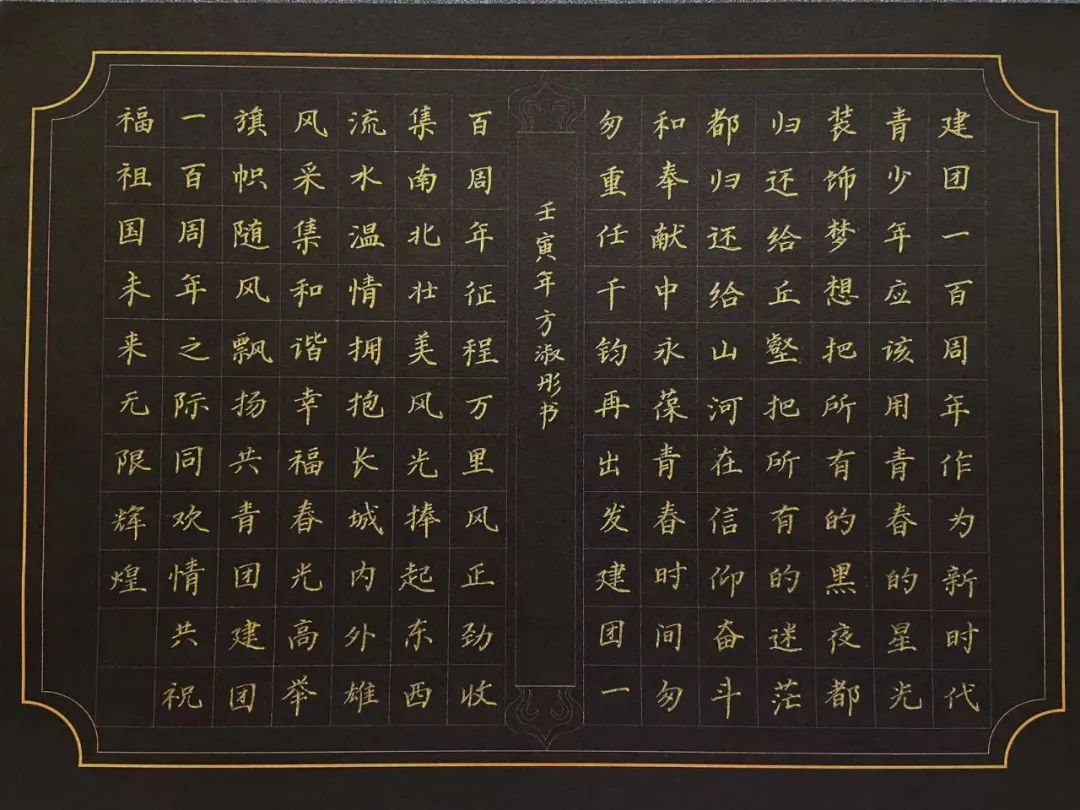 建团一百周年作为新时代
青少年应该用青春的星光
装饰梦想把所有的黑夜都
归还给丘壑把所有的迷茫
都归还给山河在信仰奋斗
和奉献中永葆青春时间匆
匆重任千钧再出发建团一
百周年征程万里风正劲收
集南北壮美风光捧起东西
流水温情拥抱长城内外雄
风采集和谐幸福春光高举
旗帜随风飘扬共青团建团
一百周年之际同欢情共祝
福祖国未来无限辉煌
壬寅年方淑彤书